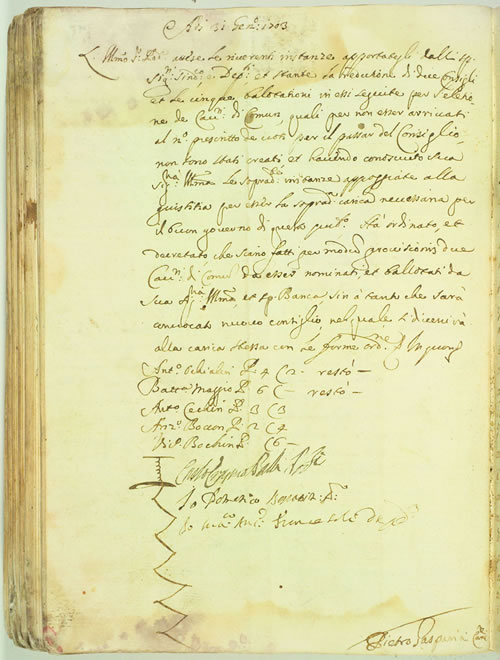 Adi 31 Gen.º 1703
L' Illmo Sr. udite le riverenti instanze apportategli dalli sp.
Sig.ri Sind.ci e Dep.ti et stante la reduttione di due Consigli
et le cinque balotationi in essi seguite per l'eletio-
ne de Cav.ri di Comun, quali per non esser arrivati
al nº prescritto de voti per il passar del Consiglio
non sono stati creati, et havendo conosciuto Sua
Sig.ria Illma le soprad.te instanze appoggiate alla
giustitia per esser la soprad.ta carica necessaria per
il buon governo di questo pub.co Hà ordinato, et
decretato che siano fatti per modum provisionis due
Cav.ri di Comun da esser nominati, et ballotati da
Sua Sig.ria Illma, et sp. Banca sin à tanto che sarà
convocato nuovo Consiglio, nel quale si divenirà
alla carica stessa con le forme ord.rie
Ant.º Ochialini P. 4 C 2 - restò -
Batta Maggio P. 6 C - restò -
Anto Cechin P. 3 C 3
Bocon P. 2 C 4
Bochin P. C 6 -
Io Domenico
Io
Pietro Gasparin